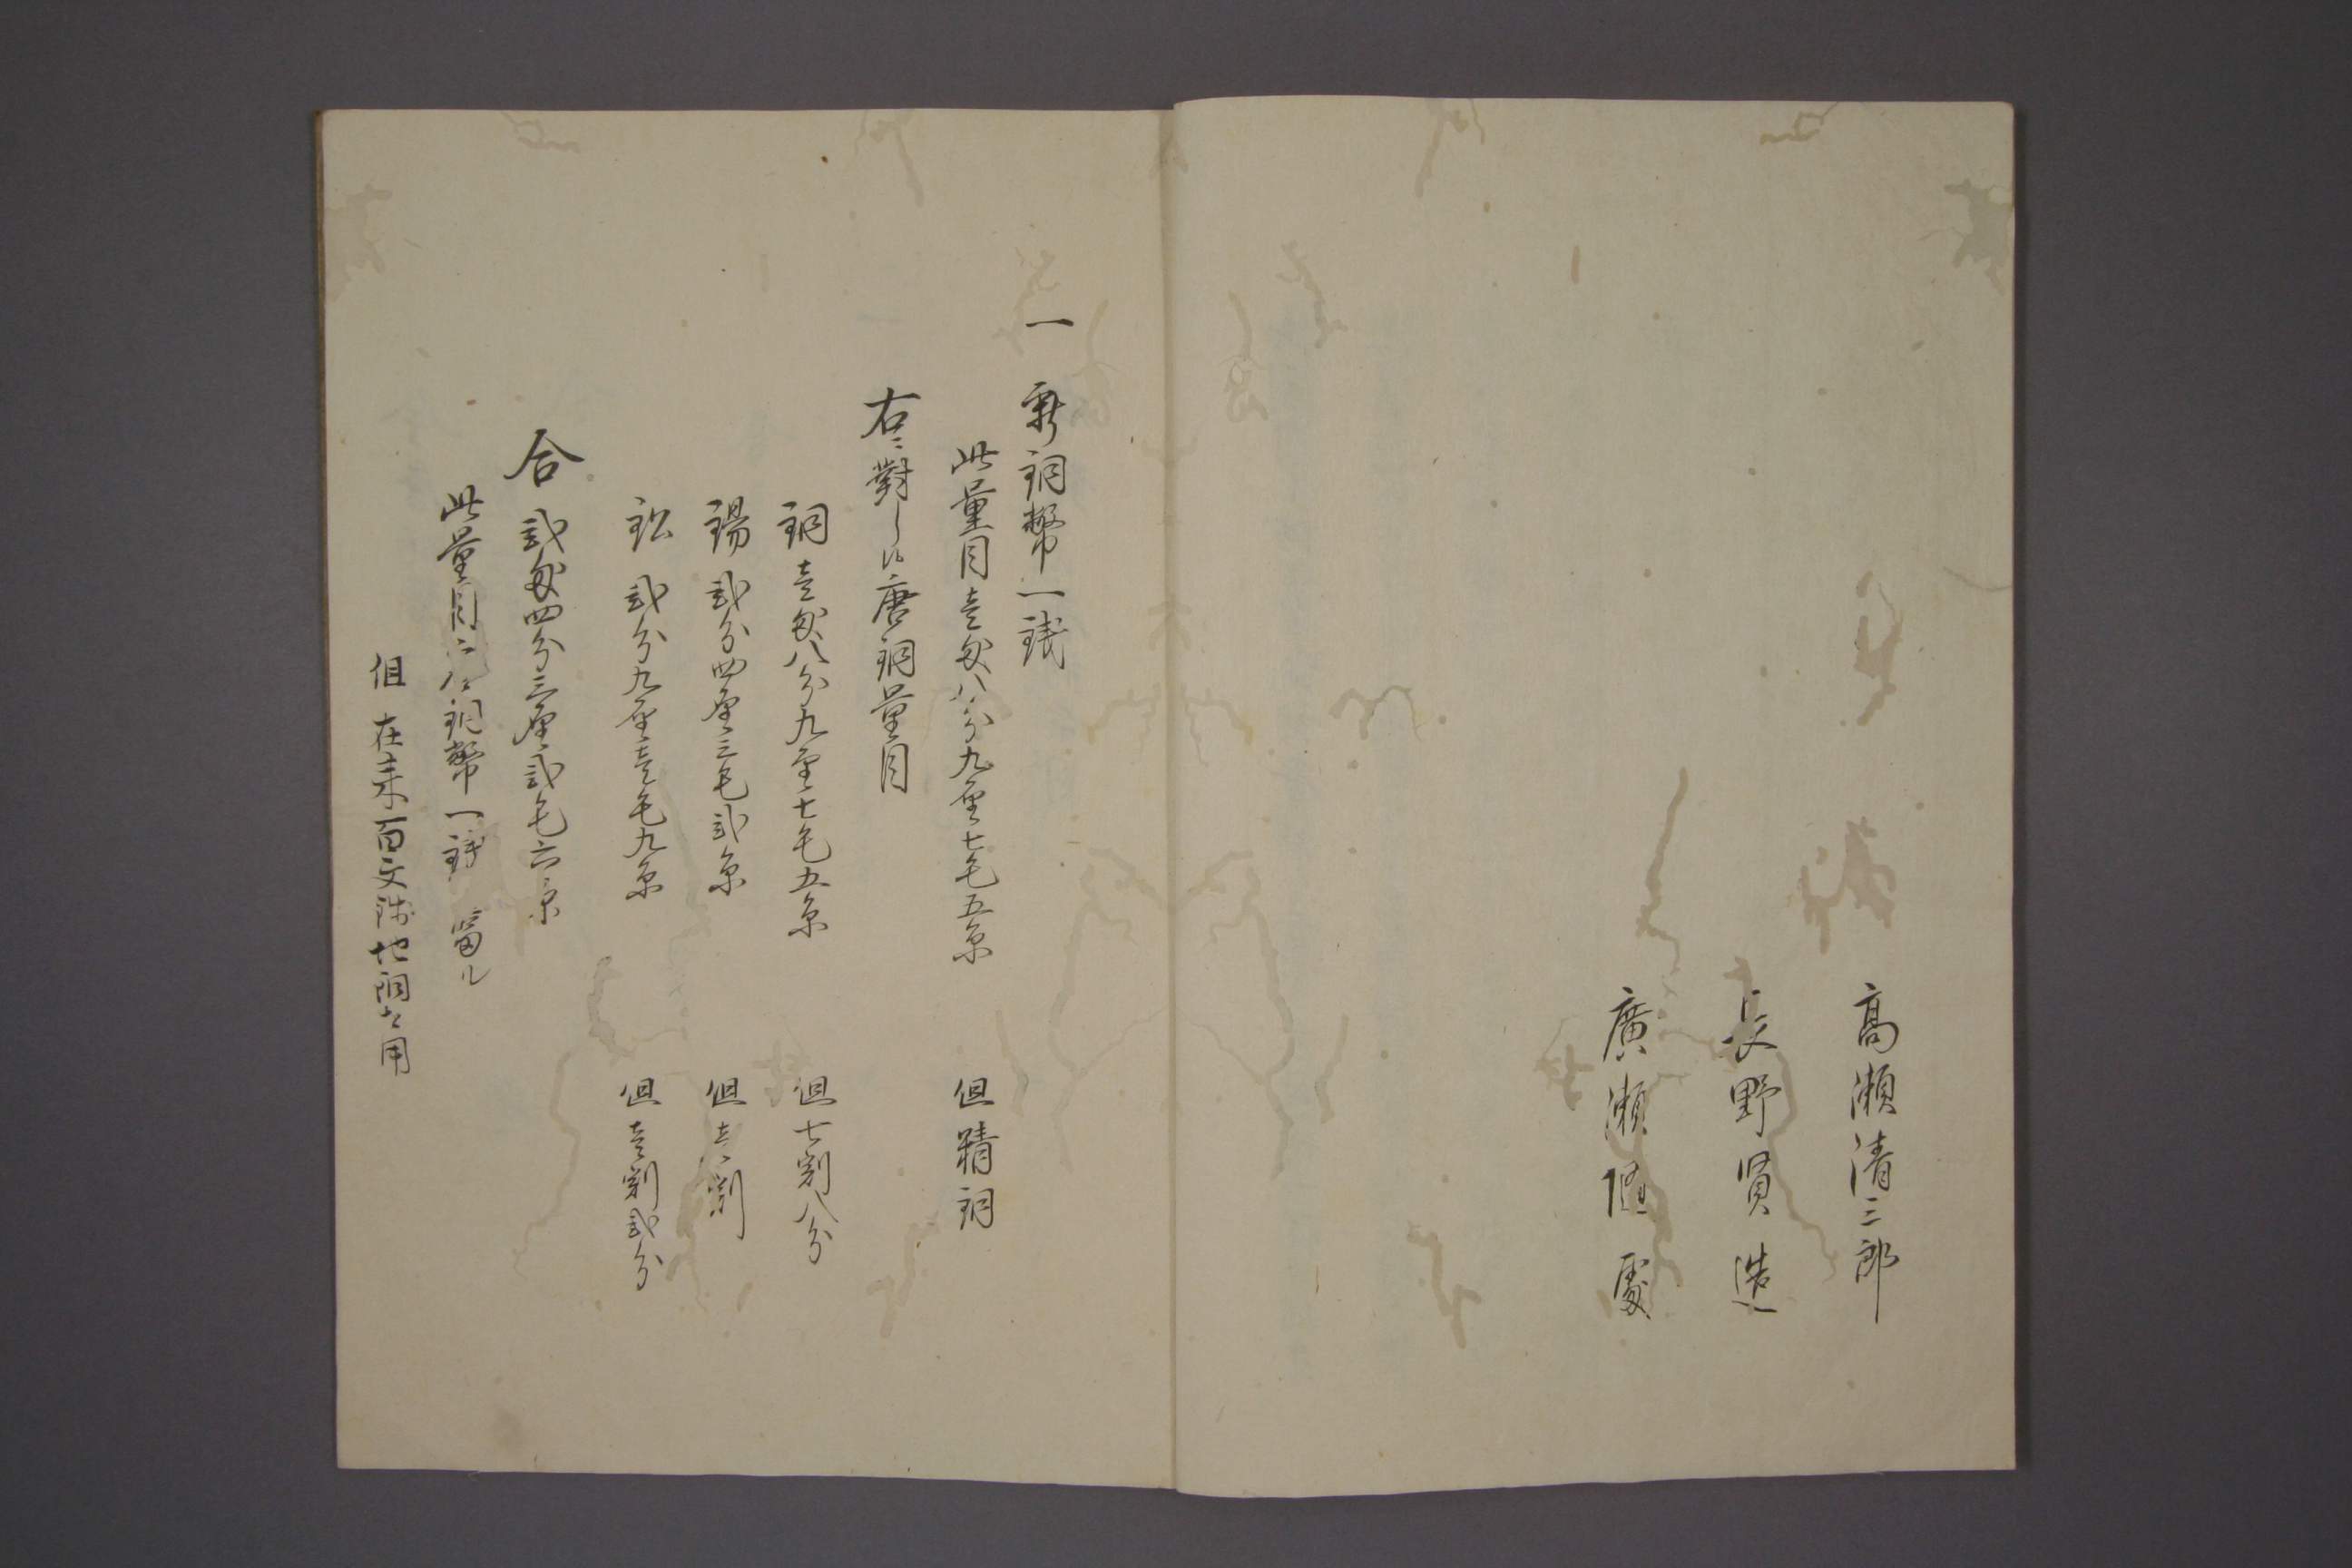 高瀬清三郎
長野賢造
廣瀬範處
一 新銅幣一銭
此量目壱匁八分九厘七毛五糸 但精銅
右ニ對シ候唐銅量目
銅壱匁八分九厘七毛五糸 但七割八分
錫弐分四厘三毛弐糸 但壱割
鉛弐分九厘壱毛九糸 但壱割弐分
合弐匁四分三厘弐毛六糸
此量目ニ而銅幣一銭ニ當ル
但在来百文銭地銅相用